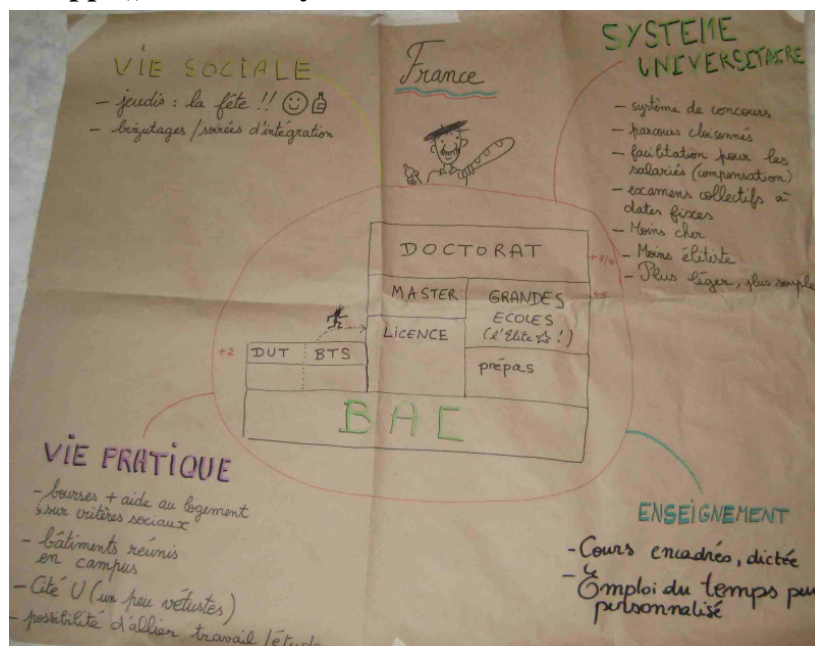 VIE SOCIALE
- jeudis : la fête !!
- bizutages / soirées d'intégration
France
SYSTEME
UNIVERSITAIRE
- système de concours
- parcours cloisonnés
- facilitation pour les
salariés (compensation)
- examens collectifs à
dates fixes
- Moins cher
- Moins élitiste
- Plus léger, plus souple
DOCTORAT
MASTER
GRANDES
ECOLES
(l'Elite !)
LICENCE
+2
DUT
BTS
prépas
BAC
VIE PRATIQUE
- bourses + aide au logement
sur critères sociaux
- bâtiments réunis
en campus
- Cité U (un peu vétustes)
- possibilité d'allier travail / étude
ENSEIGNEMENT
- Cours encadrés, dictée
- Emploi du temps peu
personnalisé